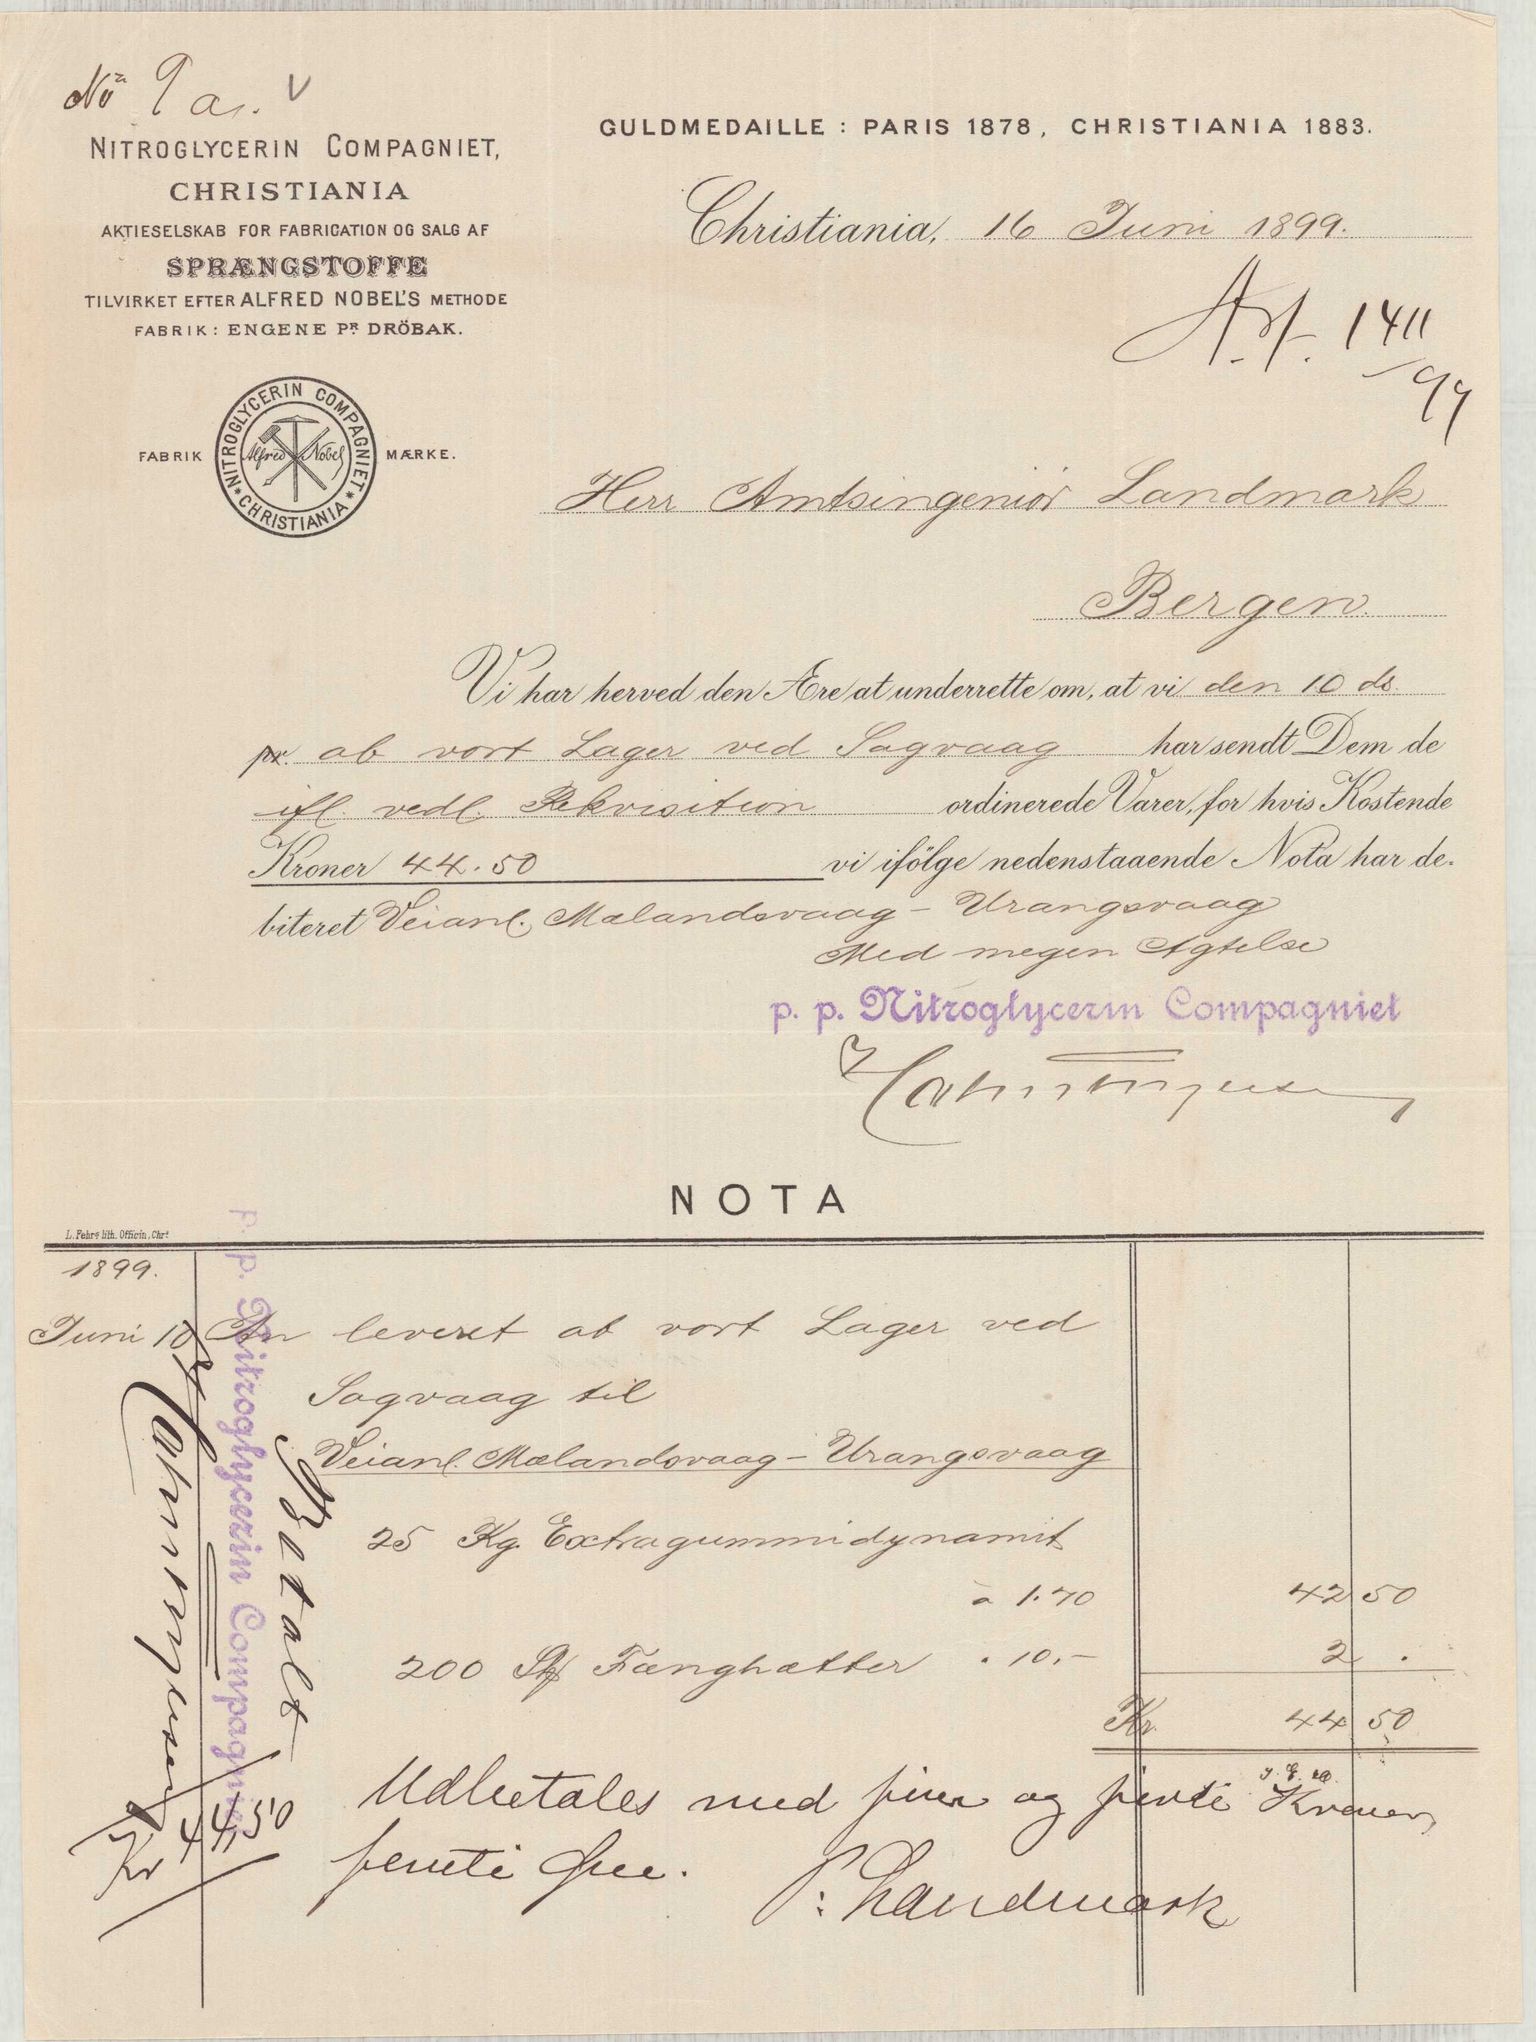 No 9 a. V
NITROGLYCERIN COMPAGNIET,
CHRISTIANIA
AKTIESELSKAB FOR FABRICATION OG SALG AF
SPRÆNGSTOFFE
TILVIRKET EFTER ALFRED NOBEL'S METHODE
FABRIK: ENGENE PR DRÖBAK.
FABRIK MÆRKE.
NITROGLYCERIN COMPAGNIET * CHRISTIANIA *
Alfred Nobel
GULDMEDAILLE: PARIS 1878, CHRISTIANIA 1883.
Christiania, 16 Juni 1899.
1411
99
Herr Amtsingeniör Landmark
Bergen.
Vi har herved den Ære at underrette om, at vi den 10 ds.
pr. ab vort Lager ved Sagvaag har sendt Dem de
ifl. vedl. Rekvisition ordinerede Varer, for hvis Kostende
Kroner 44.50 vi ifölge nedenstaaende Nota har de-
biteret Veianl. Mælandsvaag - Urangsvaag
Med megen Agtelse
p. p. Nitroglycerin Compagniet
NOTA
L. Fehrs lith. Officin, Chra
1899.
Juni 10 An leveret ab vort Lager ved
Sagvaag til
Veianl. Mælandsvaag - Urangsvaag
25 Kg. Extragummidynamit
à 1.70 42 50
200 St Fænghætter " 10.- 2 .
Kr 44 50
Udbetales med fire og firti Kroner,
femti Øre.
P. Landmark
Betalt
p. p. Nitroglycerin Compagniet
Kr 44,50